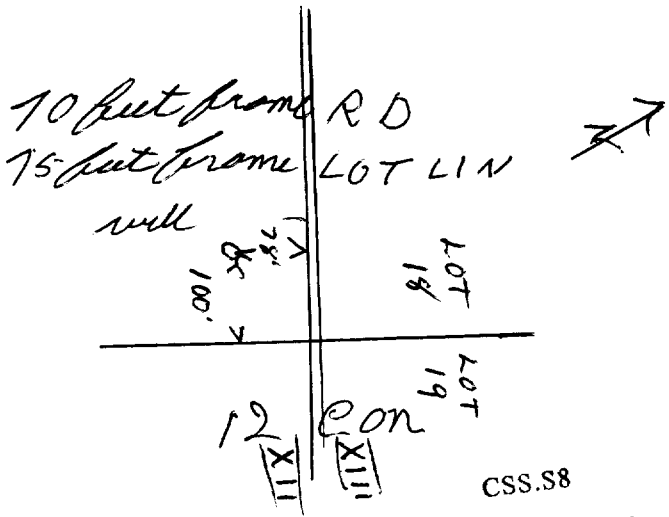 70 feet frome RD
75 feet frome LOT LIN
well
100'
LOT
18
LOT
19
12 Con
XII XIII
CSS.S8